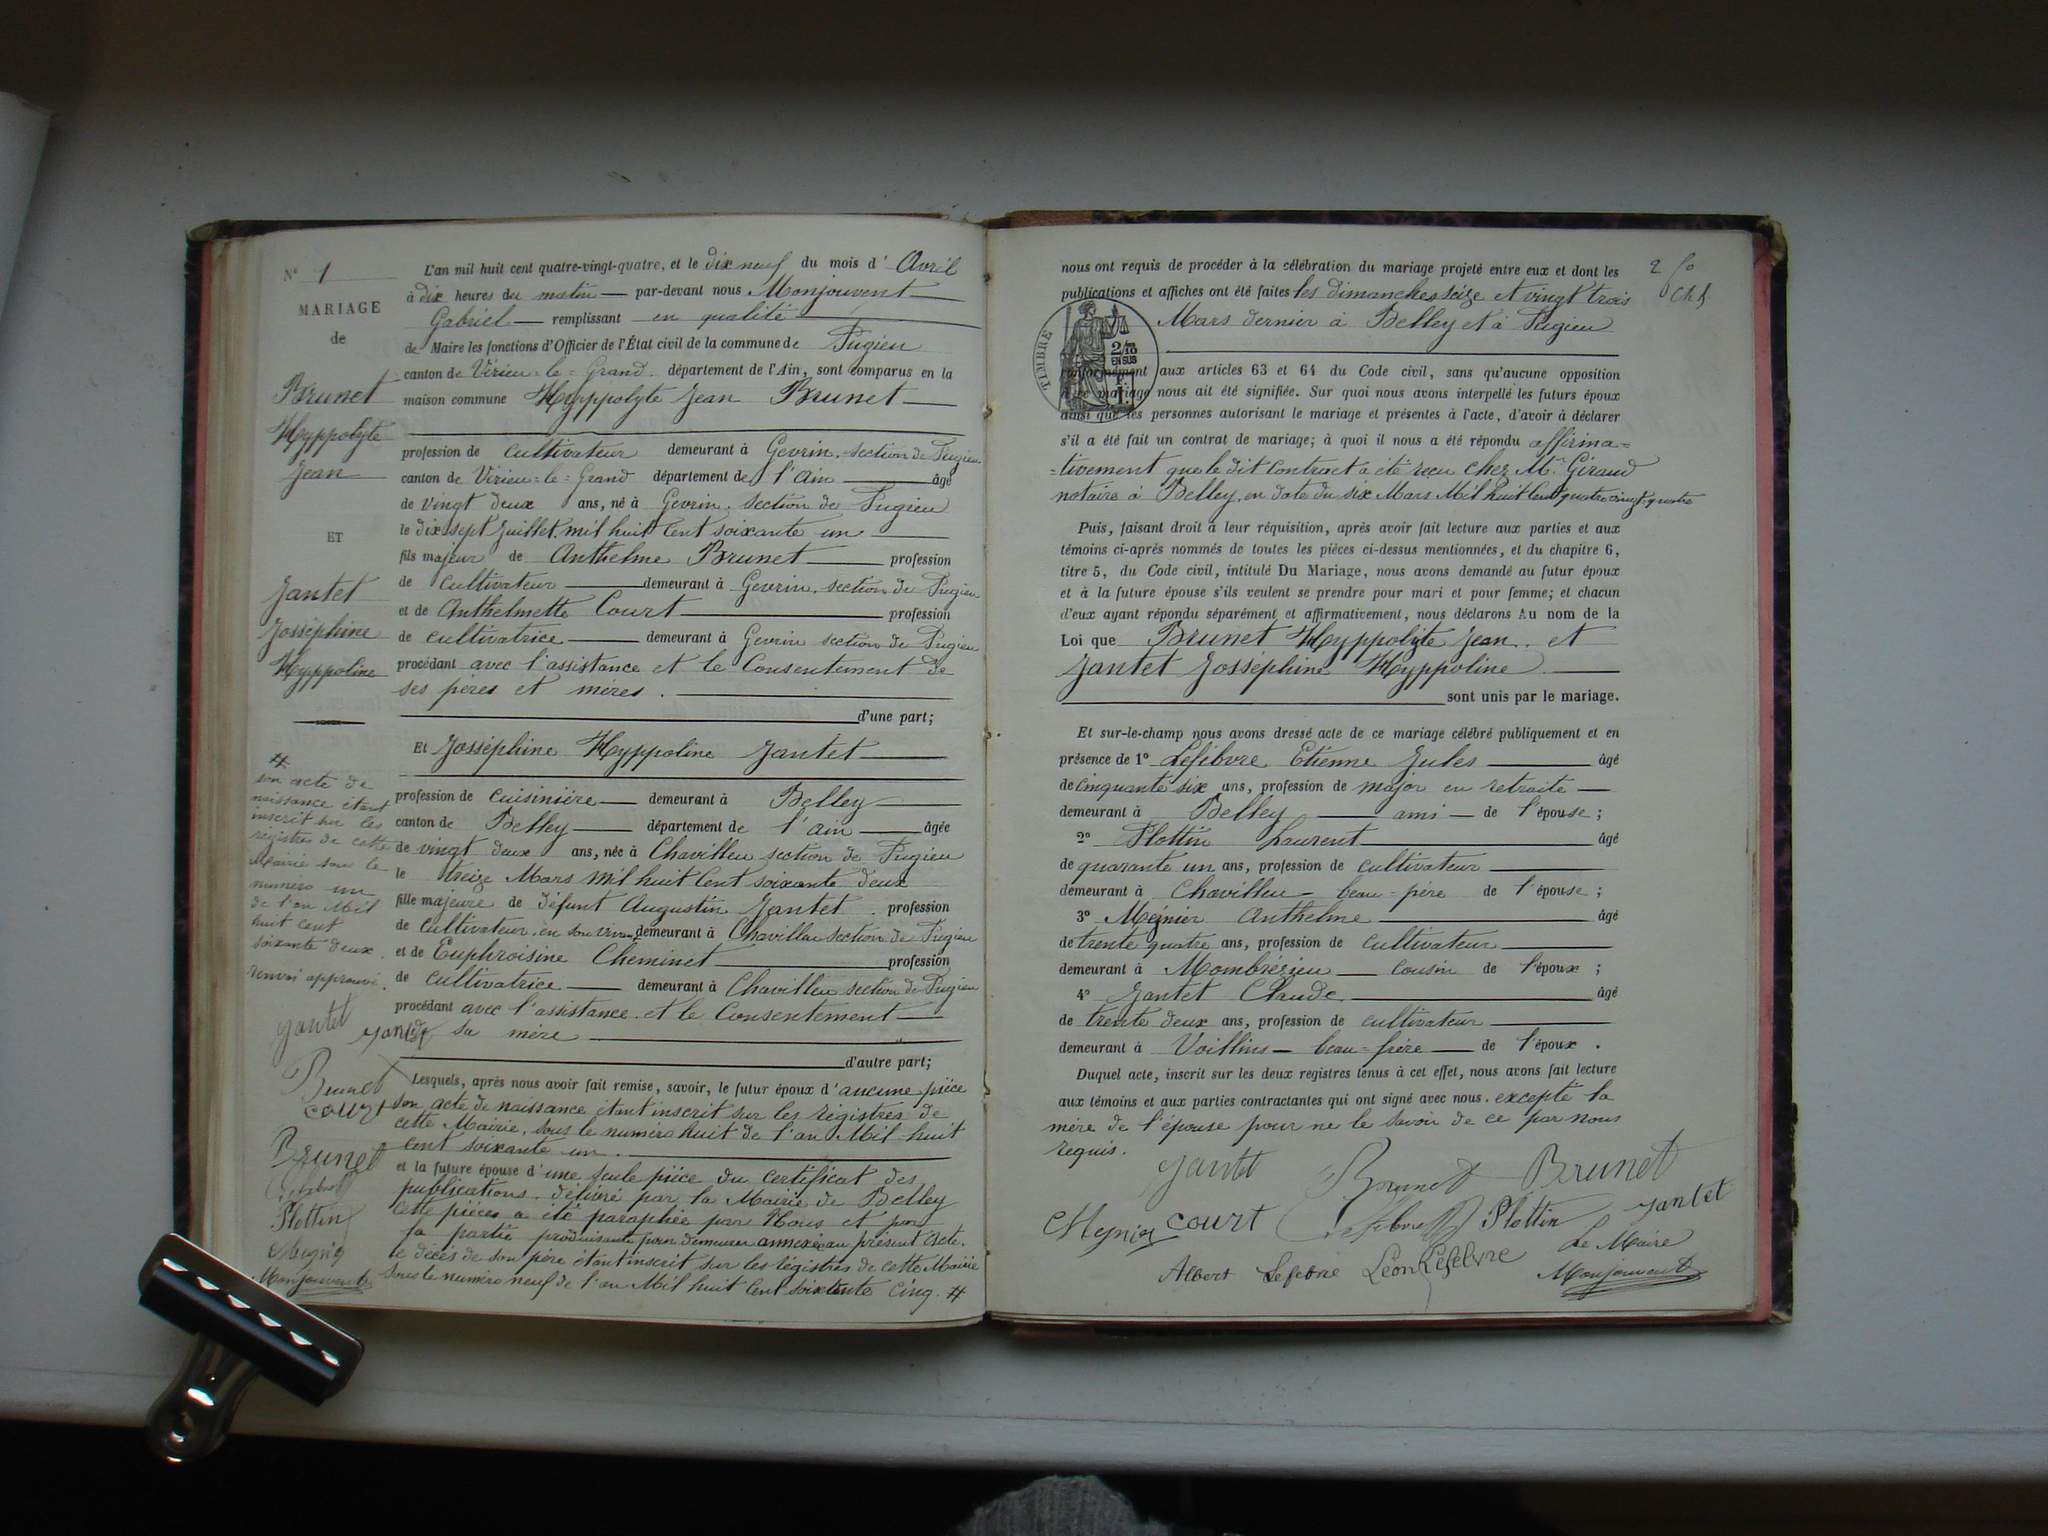 N° 1
MARIAGE
de
Brunet
Hyppolyte
Jean
ET
Jantet
Josséphine
Hyppoline
#
son acte de
naissance étant
inscrit sur les
régistres de cette
Mairie sous le
numéro un
de l'an Mil
huit cent
soixante deux.
renvoi approuvé.
Jantet Jantet
Brunet
Court
Brunet
Plottin
Meynier
Monjouvent
L'an mil huit cent quatre-vingt-quatre, et le dix neuf du mois d' Avril
à dix heures du matin — par-devant nous Monjouvent
Gabriel — remplissant en qualité
de Maire les fonctions d'Officier de l'État civil de la commune de Pugieu
canton de Virieu-le-Grand département de l'Ain, sont comparus en la
maison commune Hyppolyte Jean Brunet
profession de cultivateur demeurant à Gevrin, section de Pugieu
canton de Virieu-le-Grand département de l'ain âgé
de vingt deux ans, né à Gevrin, section de Pugieu
le dix sept Juillet mil huit cent soixante un
fils majeur de Anthelme Brunet profession
de cultivateur demeurant à Gevrin, section de Pugieu
et de Anthelmette Court profession
de cultivatrice demeurant à Gevrin section de Pugieu
procédant avec l'assistance et le Consentement de
ses pères et mères.
d'une part;
Et Josséphine Hyppoline Jantet
profession de cuisinière demeurant à Belley
canton de Belley département de l'ain âgée
de vingt deux ans, née à Chavilleu section de Pugieu
le treize Mars mil huit cent soixante deux
fille majeure de défunt Augustin Jantet profession
de cultivateur en son vivant demeurant à Chavilleu section de Pugieu
et de Euphroisine Cheminet profession
de cultivatrice demeurant à Chavilleu section de Pugieu
procédant avec l'assistance et le Consentement
de sa mère
d'autre part;
Lesquels, après nous avoir fait remise, savoir, le futur époux d'aucune pièce
son acte de naissance étant inscrit sur les régistres de
cette Mairie, sous le numéro huit de l'an Mil huit
cent soixante un.
et la future épouse d'une seule pièce du certificat des
publications délivré par la Mairie de Belley
cette pièces a été paraphée par Nous et par
la partie produisante pour demeurer annexée au présent acte.
le décès de son père étant inscrit sur les régistres de cette Mairie
sous le numéro neuf de l'an Mil huit cent soixante cinq. #
2 fo
Ch. f.
nous ont requis de procéder à la célébration du mariage projeté entre eux et dont les
publications et affiches ont été faites les dimanches seize et vingt trois
Mars dernier à Belley et à Pugieu
TIMBRE
2/10
EN SUS
conformément aux articles 63 et 64 du Code civil, sans qu'aucune opposition
à ce mariage nous ait été signifiée. Sur quoi nous avons interpellé les futurs époux
ainsi que les personnes autorisant le mariage et présentes à l'acte, d'avoir à déclarer
s'il a été fait un contrat de mariage; à quoi il nous a été répondu affirma=
=tivement que le dit contract a été reçu chez Mr Giraud
notaire à Belley, en date du six Mars Mil huit Cent quatre vingt quatre
Puis, faisant droit à leur réquisition, après avoir fait lecture aux parties et aux
témoins ci-après nommés de toutes les pièces ci-dessus mentionnées, et du chapitre 6,
titre 5, du Code civil, intitulé Du Mariage, nous avons demandé au futur époux
et à la future épouse s'ils veulent se prendre pour mari et pour femme; et chacun
d'eux ayant répondu séparément et affirmativement, nous déclarons Au nom de la
Loi que Brunet Hyppolyte Jean et
Jantet Josséphine Hyppoline
sont unis par le mariage.
Et sur-le-champ nous avons dressé acte de ce mariage célébré publiquement et en
présence de 1° Lefèbvre Etienne Jules âgé
de cinquante six ans, profession de major en retraite
demeurant à Belley — ami — de l'épouse;
2° Plottin Laurent âgé
de quarante un ans, profession de cultivateur
demeurant à Chavilleu beau=père de l'épouse;
3° Meynier Anthelme âgé
de trente quatre ans, profession de cultivateur
demeurant à Mombrérieu — cousin de l'époux;
4° Jantet Claude âgé
de trente deux ans, profession de cultivateur
demeurant à Voillins — beau=frère — de l'époux.
Duquel acte, inscrit sur les deux registres tenus à cet effet, nous avons fait lecture
aux témoins et aux parties contractantes qui ont signé avec nous. excepté la
mère de l'épouse pour ne le savoir de ce par nous
requis.
Jantet Brunet Brunet
Meynier Court Lefebvre Plottin Jantet
Le Maire
Albert Lefebvre Léon Lefebvre Monjouvent